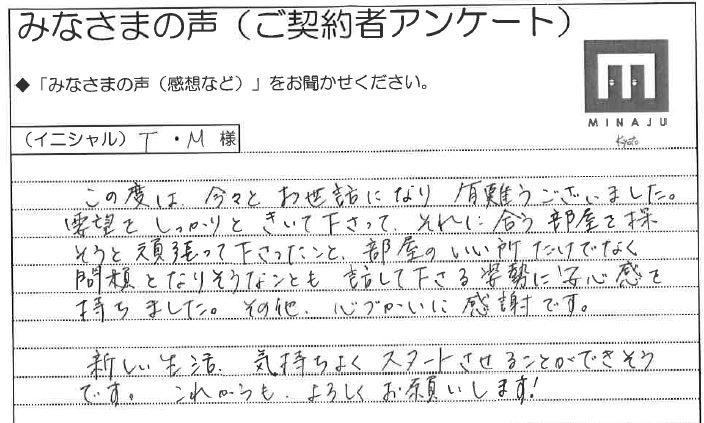 みなさまの声（ご契約者アンケート）
◆「みなさまの声（感想など）」をお聞かせください。
MINAJU
Kyoto
（イニシャル）T・M様
この度は、今々と お世話になり 有難うございました。
要望を しっかりと きいて下さって、それに合う部屋を探
そうと頑張って下さったことと、部屋のいい所だけでなく
問題となりそうなことも 話して下さる姿勢に安心感を
持ちました。その他、心づかいに感謝です。
新しい生活、気持ちよく スタートさせることができそう
です。これからも、よろしくお願いします!